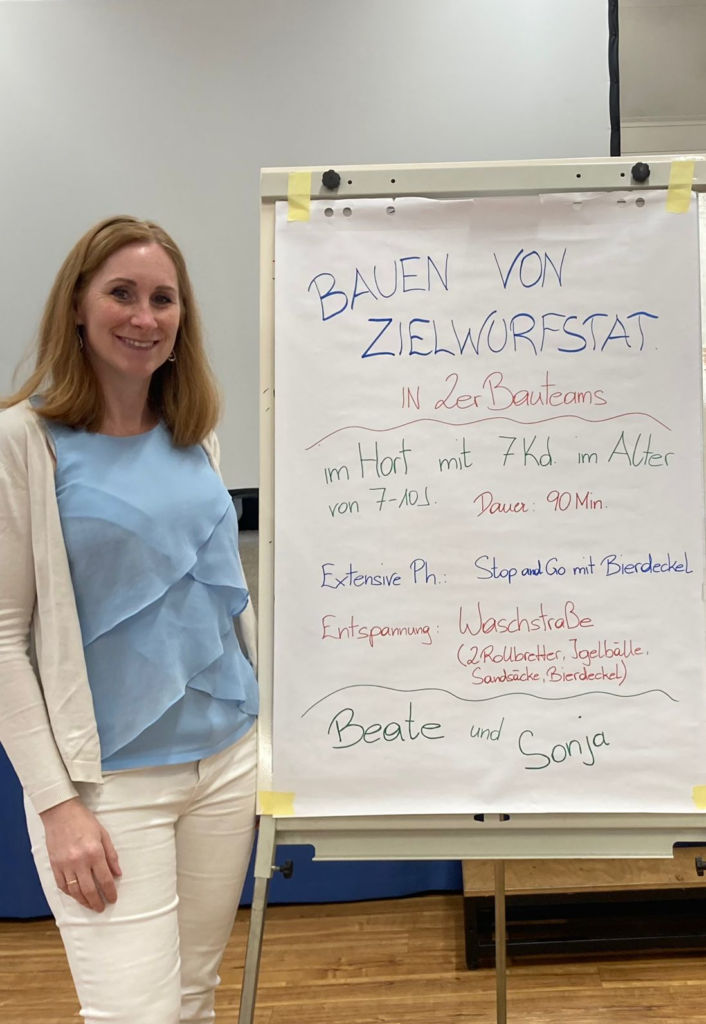 BAUEN VON
ZIELWURFSTAT.
IN 2er Bauteams
im Hort mit 7 Kd. im Alter
von 7-10J. Dauer: 90 Min.
Extensive Ph.: Stop and Go mit Bierdeckel
Entspannung: Waschstraße
(2 Rollbretter, Igelbälle,
Sandsäcke, Bierdeckel)
Beate und Sonja